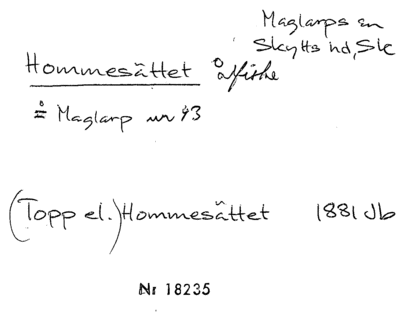 Maglarps sn
Skytts hd, Sk
Hommesättet ålfiske
å Maglarp nr 43
(Topp el.) Hommesättet 1881 Jb
Nr 18235